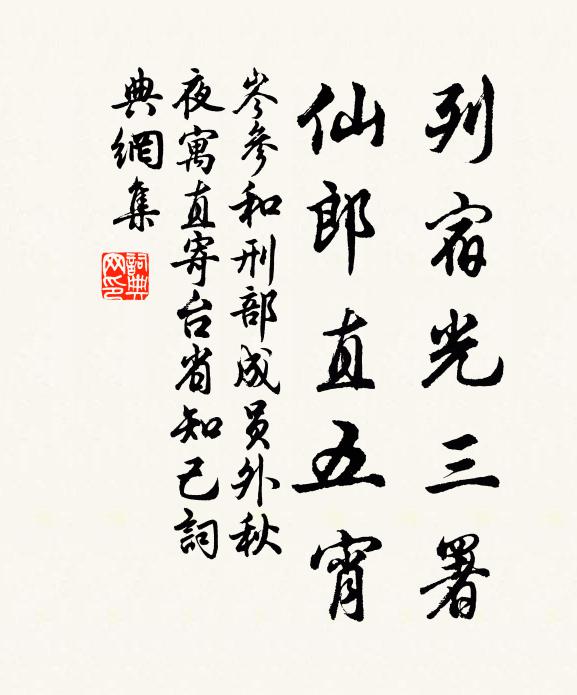 列宿光三署
仙郎直五宵
岑參和刑部成员外秋
夜寓直寄台省知己詞
典網集
詞典网印